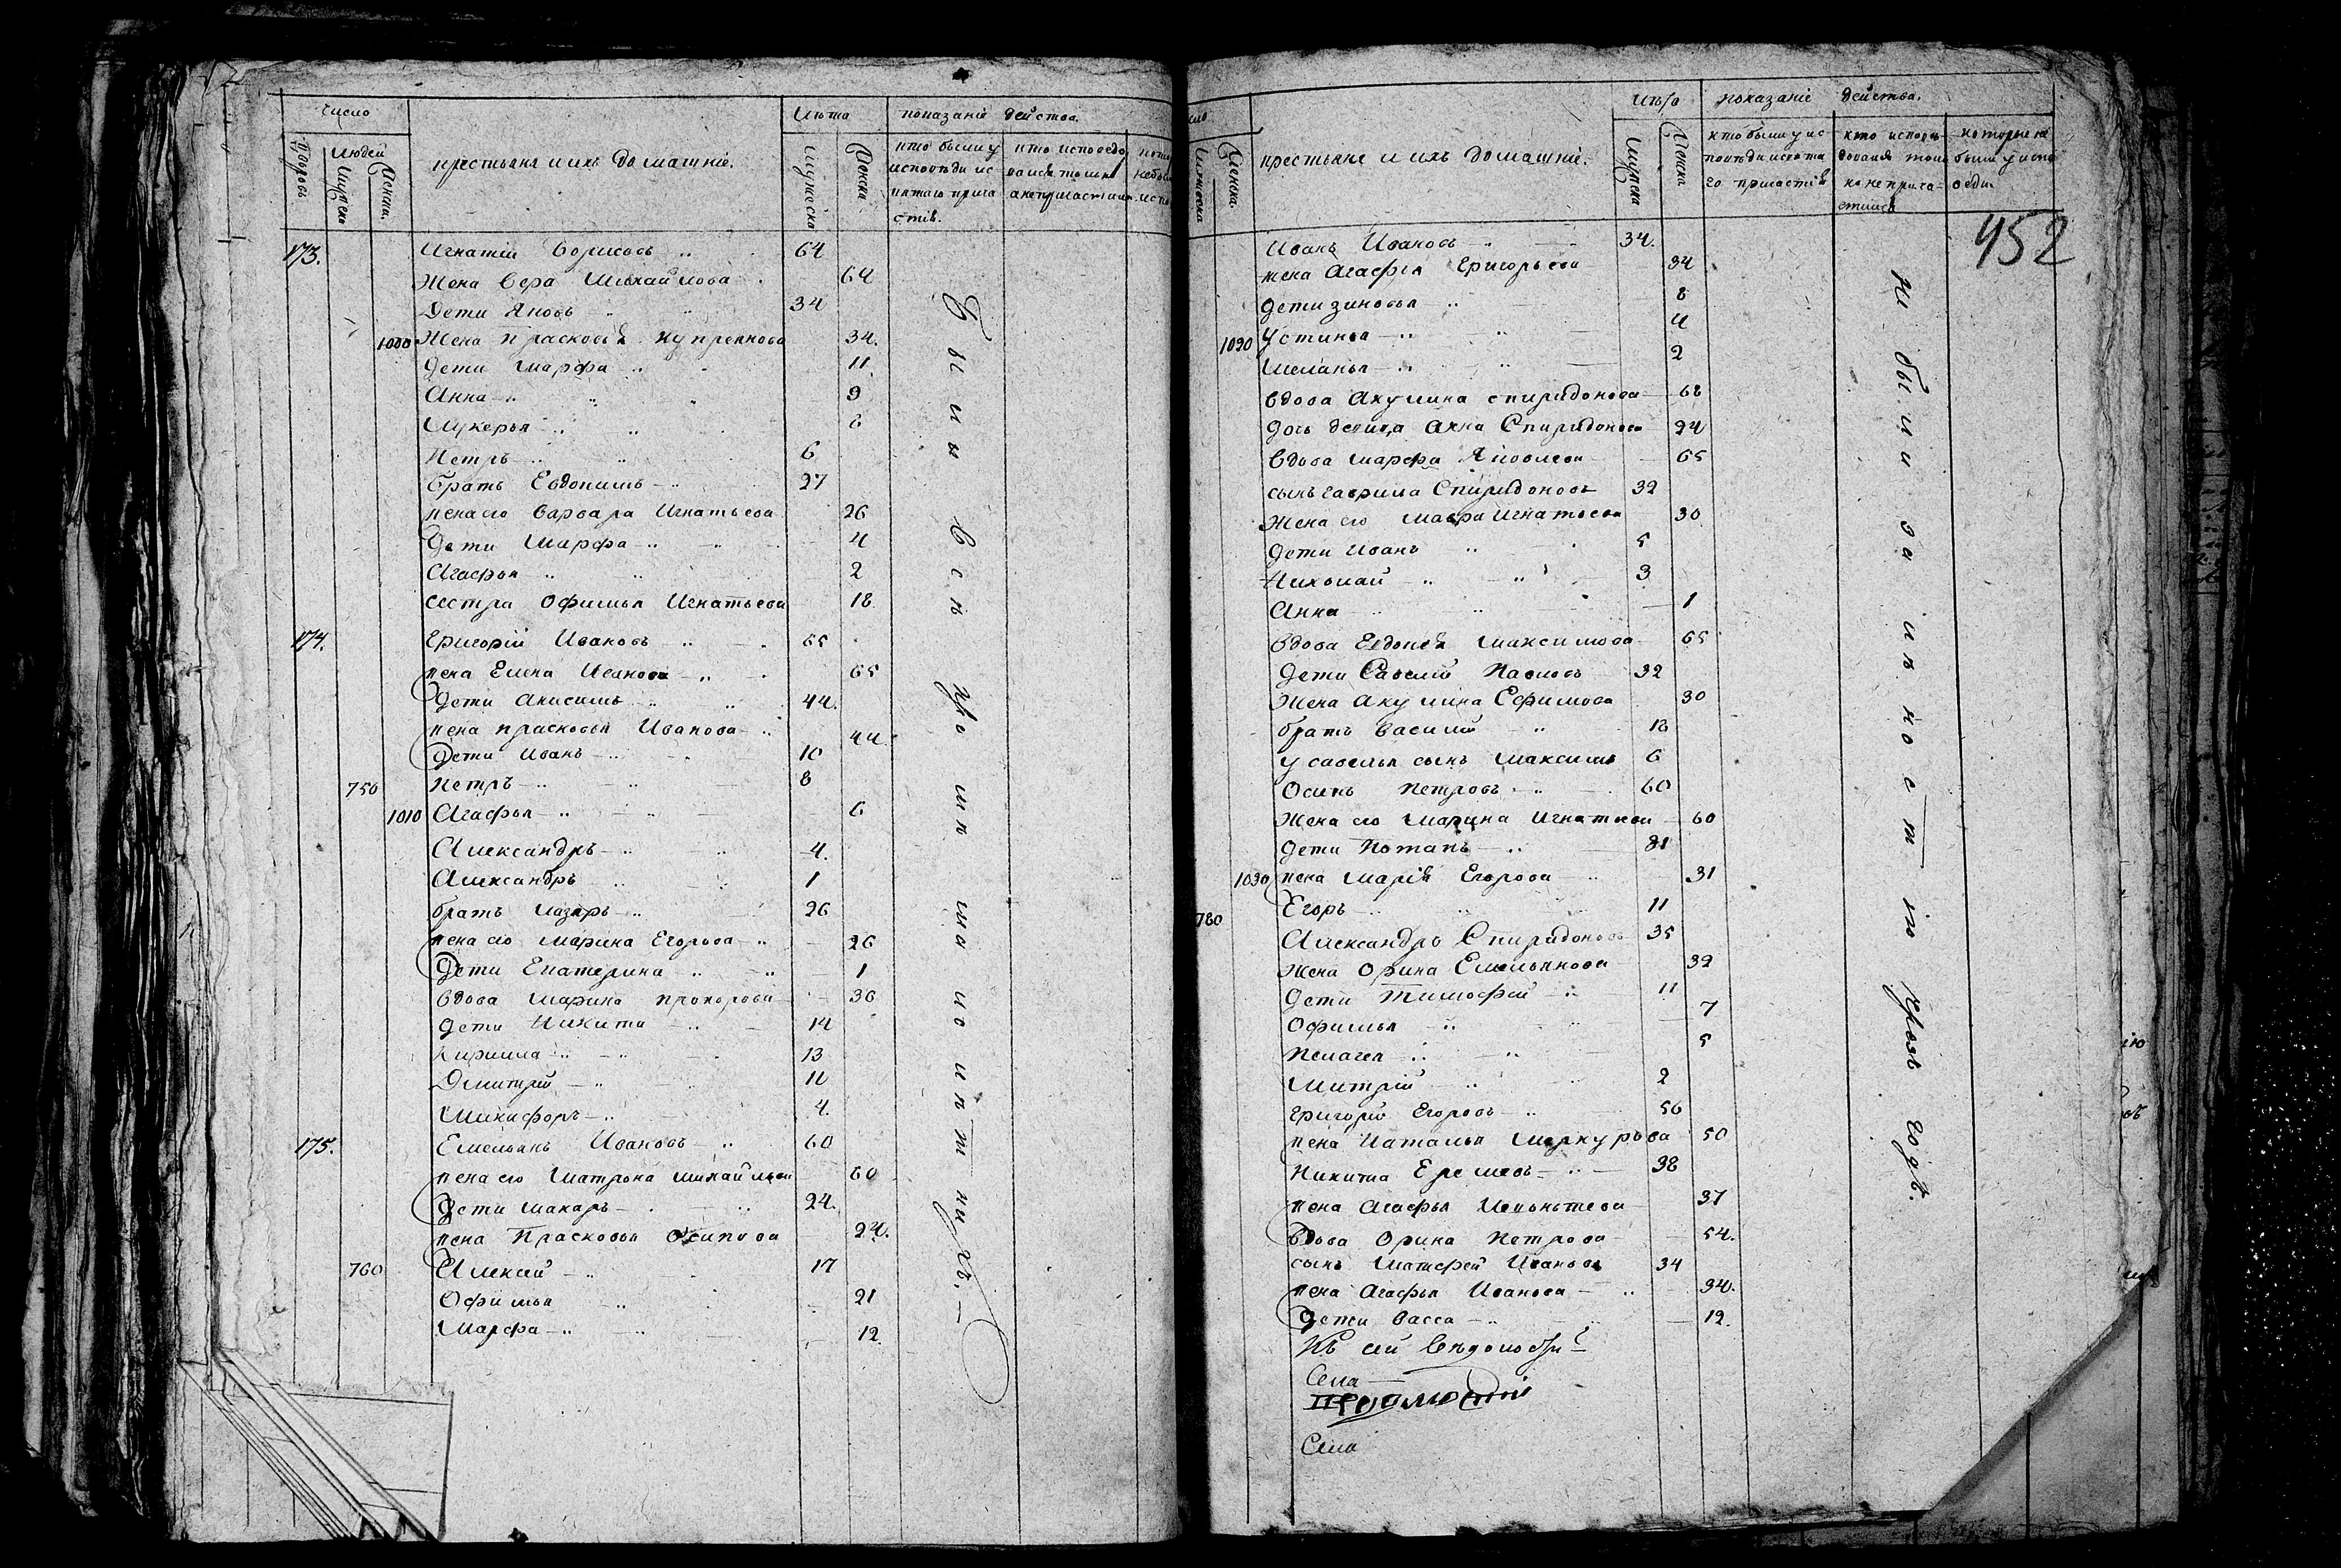 число
Люде
лѣта
показаніе действа.
дворовъ
мужеска
женска.
крестьяне и ихъ домашніе.
мужеска
женска
кто были у
исповѣди и с
вятаго прича
стія.
173.
Игнатій Борисовъ 64
Жена Вера Михайлова 64
Дети Яковъ 34
1000 Жена Прасковья Купреянова 34.
Дети Марфа 11
Анна 9
Лукерья 6
Петръ 6
братъ Евдокимъ 27
жена его Варвара Игнатьева 26
Дети Марфа 4
Агафья 2
сестра Офимья Игнатьева 18
174.
Григорій Ивановъ 65
жена Елена Иванова 65
Дети Анисимъ 44.
жена Прасковья Иванова 44
Дети Иванъ 10
750 Петръ 8
1010 Агафья 6
Александръ 4.
Александръ 1
братъ Лазарь 26
жена его Марина Егорова 26
Дети Екатерина 1
вдова Марина Прохорова 36
Дети Никита 14
Кирилла 13
Дмитрій 11
Никифоръ 4.
175.
Емельянъ Ивановъ 60
жена его Матрона Михайлова 60
Дети Макаръ 24.
жена Прасковья Осипова 24.
760 Алексей 17
Офимья 21
Марфа 12
Были всѣ
лѣта
показаніе действа.
женска.
крестьяне и ихъ домашніе.
мужеска
женска
кто были у ис
повѣди и свята
го причастія
кто испове-
дались токмо
а не прича-
стились
которые не
были у испо
веди
452
Иванъ Ивановъ 34.
жена Агафья Григорьева 34
Дети Зиновья 8
1020 Устинья 4
Меланья 2
вдова Акулина Спиридонова 68
дочь девица Анна Спиридонова 24
вдова Марфа Яковлева 65
сынъ Гаврила Спиридоновъ 32
Жена его Мавра Игнатьева 30
Дети Иванъ 5
Николай 3
Анна 1
вдова Евдокія Максимова 65
Дети Савелій Павловъ 32
Жена Акулина Ефимова 30
братъ Василій 18
у Савелья сынъ Максимъ 6
Осипъ Петровъ 60
Жена его Марина Игнатьева 60
Дети Потапъ 31
1030 жена Марія Егорова 31
780 Егоръ 11
Александръ Спиридоновъ 35
Жена Орина Емельянова 32
Дети Тимофей 11
Офимья 7
Пелагея 5
Митрій 2
Григорій Егоровъ 50
жена Наталья Меркурьева 50
Никита Еремеевъ 38
жена Агафья 37
вдова Орина Петрова 54.
сынъ Матфей Ивановъ 34
жена Агафья Иванова 34.
Дети Васса 12.
Къ сей
Села
Села
не были за
годъ.